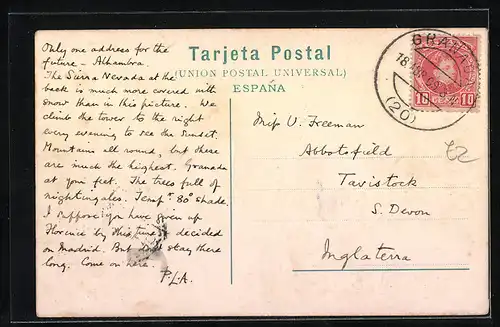 Only one address for the
future - Alhambra.
The Sierra Nevada at the
back is much more covered with
snow than in this picture. We
climb the tower to the right
every evening to see the sunset.
Mountains all round, but these
are much the highest. Granada
at your feet. The trees full of
nightingales. Tempr. 80° shade.
I suppose you have given up
Florence by this time & decided
on Madrid. But don't stay there
long. Come on here.
P.L.A.
Tarjeta Postal
(UNION POSTAL UNIVERSAL)
ESPAÑA
GRANADA
18
(20)
10 10
Miss V. Freeman
Abbotsfield
Tavistock
S. Devon
Inglaterra